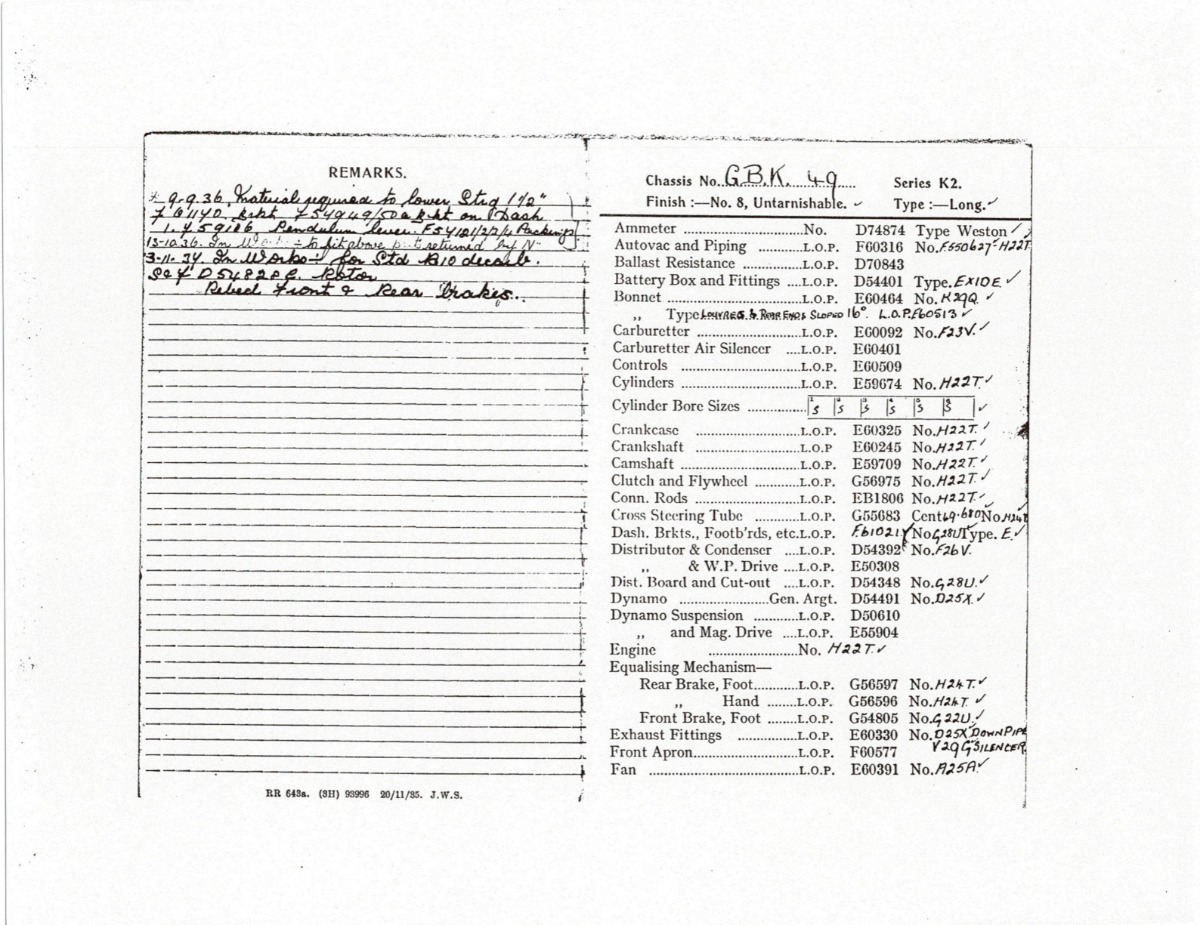 REMARKS.
9-9.36. Material required to lower Strg 1½"
Brkt on Dash
1. Pendulum lever. Packings
13-10.36. In to fit above returned by
3-11. In Works for Std decarb.
Rotor
Rebed Front & Rear Brakes.
RR 643a. (3H) 93996 20/11/35. J.W.S.
Chassis No. G.B.K. 49 Series K2.
Finish :—No. 8, Untarnishable. ✓ Type :—Long. ✓
Ammeter ..... No. D74874 Type Weston ✓
Autovac and Piping ..... L.O.P. F60316 No. F550627 H22T
Ballast Resistance ..... L.O.P. D70843
Battery Box and Fittings ..... L.O.P. D54401 Type. EXIDE ✓
Bonnet ..... L.O.P. E60464 No. K29Q ✓
„ Type LOUVRES & REAR ENDS SLOPED 16°. L.O.P. E60513 ✓
Carburetter ..... L.O.P. E60092 No. F23V. ✓
Carburetter Air Silencer ....L.O.P. E60401
Controls ..... L.O.P. E60509
Cylinders ..... L.O.P. E59674 No. H22T. ✓
Cylinder Bore Sizes ..... 1 S 2 S 3 S 4 S 5 S 6 S ✓
Crankcase ..... L.O.P. E60325 No. H22T. ✓
Crankshaft ..... L.O.P E60245 No. H22T. ✓
Camshaft ..... L.O.P. E59709 No. H22T. ✓
Clutch and Flywheel ..... L.O.P. G56975 No. H22T. ✓
Conn. Rods ..... L.O.P. EB1806 No. H22T. ✓
Cross Steering Tube ..... L.O.P. G55683 Cent 49.680 No H24T ✓
Dash. Brkts., Footb'rds, etc. L.O.P. F61021 No. G28U Type. E. ✓
Distributor & Condenser ....L.O.P. D54392 No. F26V.
„ & W.P. Drive ....L.O.P. E50308
Dist. Board and Cut-out ....L.O.P. D54348 No. G28U. ✓
Dynamo ..... Gen. Argt. D54491 No. D25X. ✓
Dynamo Suspension ..... L.O.P. D50610
„ and Mag. Drive ....L.O.P. E55904
Engine ..... No. H22T. ✓
Equalising Mechanism—
Rear Brake, Foot ..... L.O.P. G56597 No. H24T. ✓
„ Hand ..... L.O.P. G56596 No. H24T. ✓
Front Brake, Foot ..... L.O.P. G54805 No. G22U. ✓
Exhaust Fittings ..... L.O.P. E60330 No. D25X DOWN PIPE
Front Apron ..... L.O.P. F60577 V29G SILENCER
Fan ..... L.O.P. E60391 No. A25A. ✓